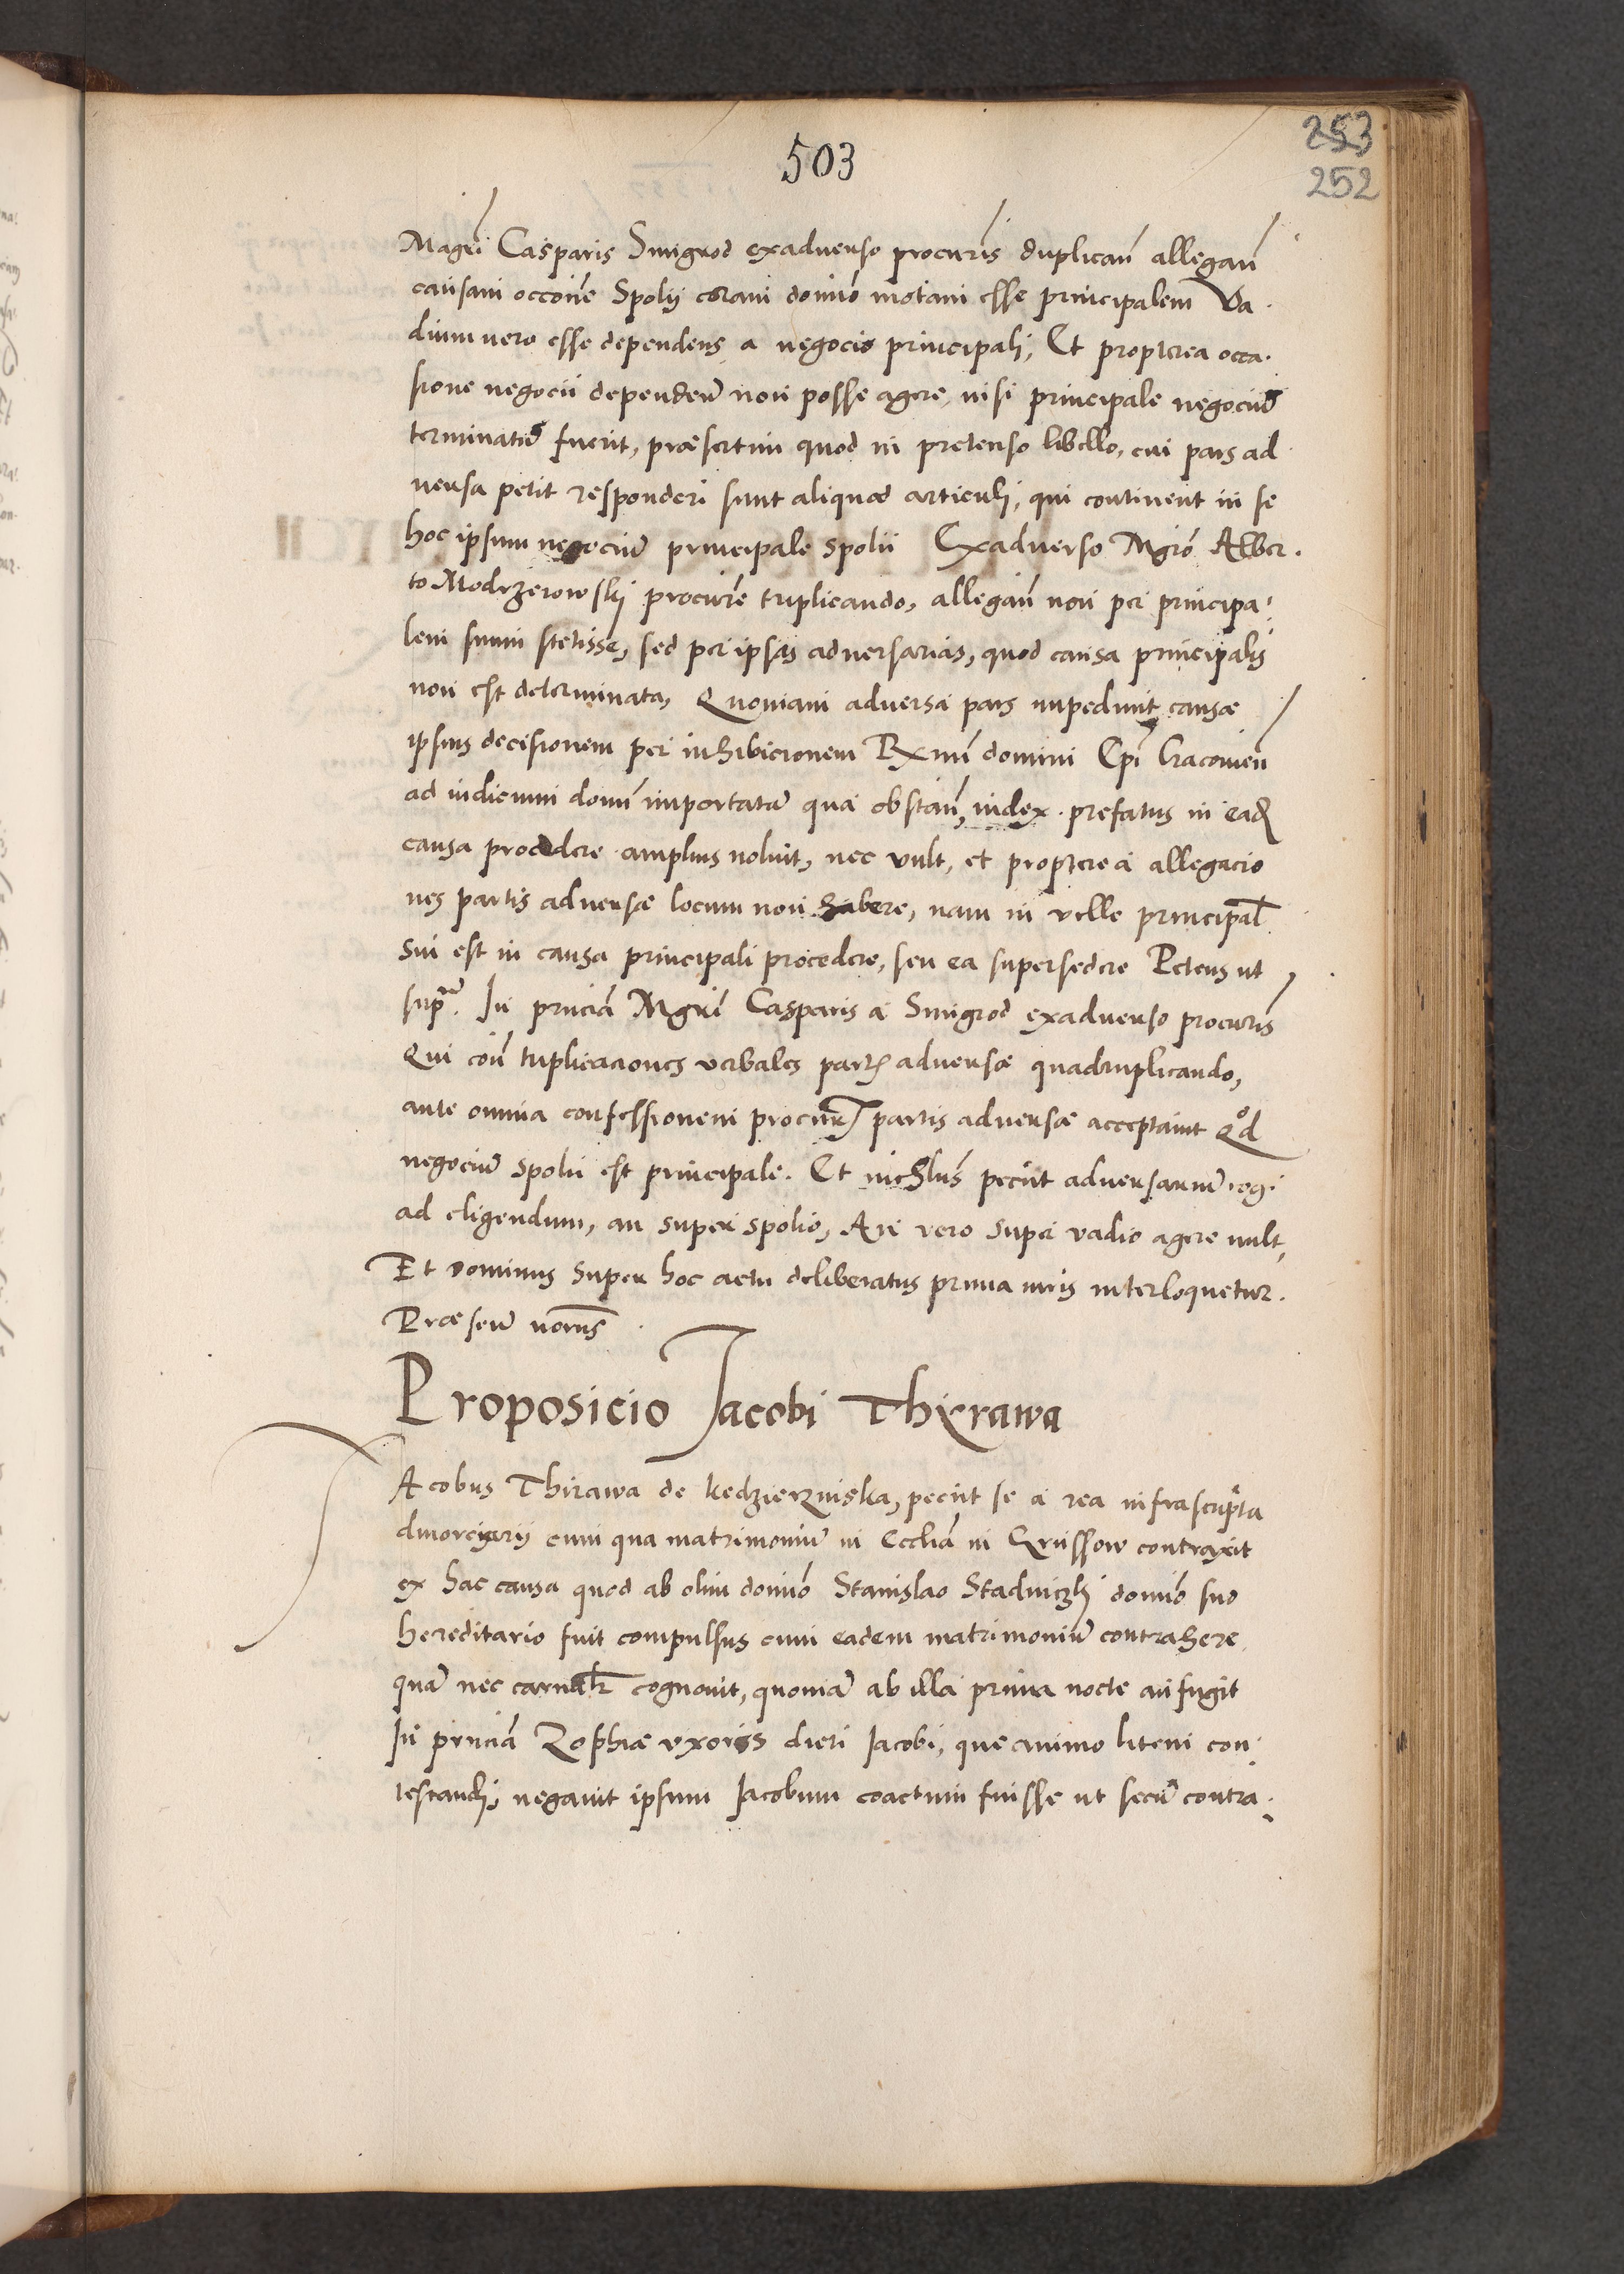 253
503
252
Magrī Casparis Smigrod exadverso procuris duplican̄ allegan̄
causam occōne Spolij coram domīo motam esse principalem Va.
dium vero esse dependens a negocio principali, Et propterea occa.
sione negocii dependen̄ non posse agere, nisi principale negociū
terminatū fuerit, præsertim quod in pretenso libello, cui pars ad
versa petit responderi sunt aliquod articuli, qui continent in se
hoc ipsum negociū principale spolii Exadverso Mgrō Alber.
to Modrzerowskj procure triplicando, allegan̄ non per principa:
lem suum stetisse, sed per ipsas adversarias, quod causa principalis
non est determinata, Quoniam adversa pars impedivit causæ
ipsius decisionem per inhibicionem Rxmi domini Epi Cracovien̄
ad iudicium domī importatā qua obstan̄, iudex prefatus in eadē
causa procedere amplius noluit, nec vult, et propterea allegacio
nes partis adversæ locum non habere, nam in velle principal
sui est in causa principali procedere, seu ea supersedere Petens ut
supra. In prnciā Mgrī Casparis a Smigrod exadverso procuris
Qui con̄ triplicaciones verbales partis adversæ quadruplicando,
ante omnia confessionem procuris partis adversæ acceptavit Qd
negociū spolii est principale. Et nichlūs peciit adversarium cogi
ad eligendum, an super spolio, An vero super vadio agere vult,
Et dominus super hoc actu deliberatus prima iuris interloquetur.
Præsen̄ norīs
Proposicio Jacobi Thyrawa
Jacobus Thirawa de kedzierzniska, peciit se a rea infrascripta
divorciari cum qua matrimoniū in Eccliā in Grussow contraxit
ex hac causa quod ab olim domīo Stanislao Stadniczkj domīo suo
hereditario fuit compulsus cum eadem matrimoniū contrahere
quā nec carnalr cognovit, quoniā ab illa prima nocte aufugit
In prnciā Zophiæ uxoris dicti Jacobi, que animo litem con
testandi, negavit ipsum Jacobum coactum fuisse ut secū contra.